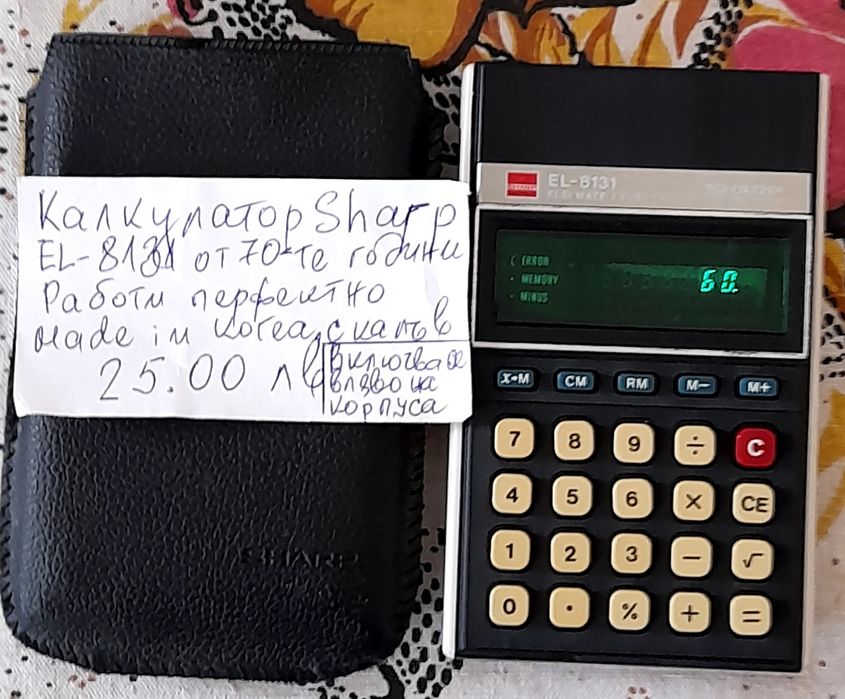 Калкулатор Sharp
EL-8131 от 70-те години
Работи перфектно
made in Korea, с калъв
25.00 лв
включва се
вляво на
корпуса
SHARP
EL-8131
SHARP
( ERROR
• MEMORY
- MINUS
60.
X•M CM RM M− M+
7 8 9 ÷ C
4 5 6 × CE
1 2 3 − √
0 • % + =